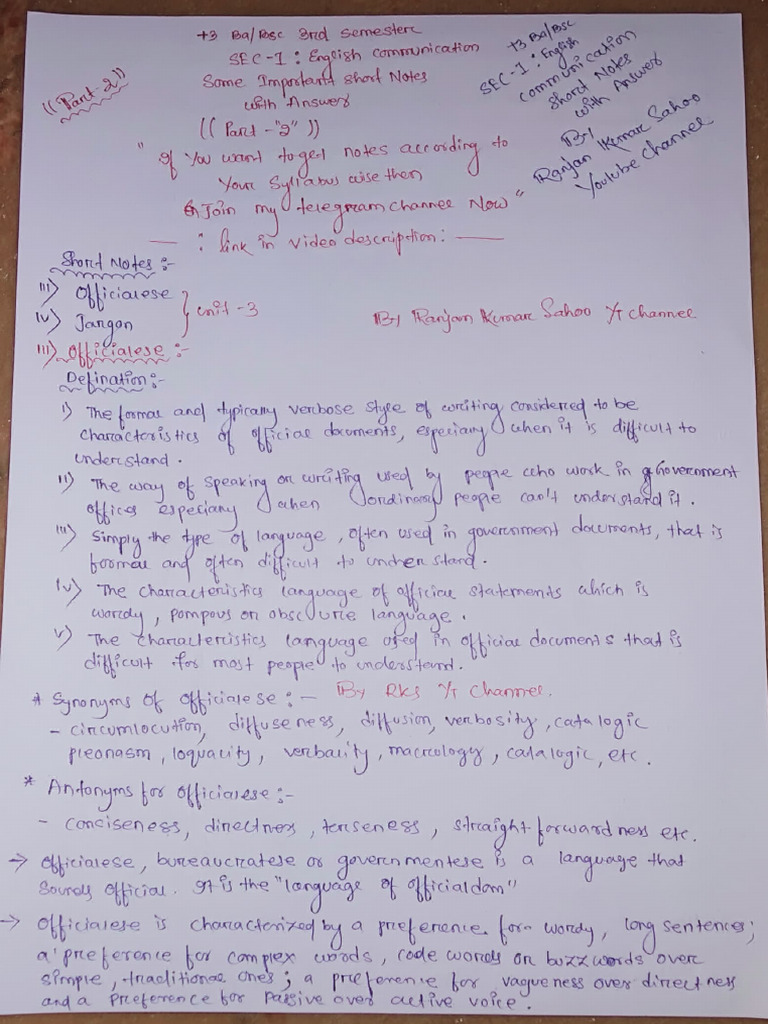 +3 Ba/Bsc 3rd Semester
SEC-1 : English communication
Some Important Short Notes
with Answer
((Part - "2"))
((Part-2))
+3 Ba/Bsc
SEC-1 : English
communication
Short Notes
with Answer
By
Ranjan Kumar Sahoo
Youtube Channel
"If You want to get notes according to
Your Syllabus wise then
Join my telegram channel Now"
— : link in video description: —
Short Notes :-
iii) Officialese
iv) Jargon
} Unit -3
By Ranjan Kumar Sahoo YT channel
iii) Officialese :-
Defination :-
i) The formal and typically verbose style of writing considered to be
characteristics of official documents, especially when it is difficult to
understand.
ii) The way of speaking or writing used by people who work in Government
offices especially when ordinary people can't understand it.
iii) Simply the type of language, often used in government documents, that is
formal and often difficult to understand.
iv) The characteristics language of official statements which is
wordy, pompous or obscure language.
v) The characteristics language used in official documents that is
difficult for most people to understand.
* Synonyms of officialese :- By RKS YT Channel.
- circumlocution, diffuseness, diffusion, verbosity, catalogic
pleonasm, loquacity, verbality, macrology, catalogic, etc.
* Antonyms for officialese :-
- conciseness, directness, terseness, straight forwardness etc.
→ Officialese, bureaucratese or governmentese is a language that
sounds official. It is the "language of officialdom"
→ Officialese is characterized by a preference for wordy, long sentences;
a preference for complex words, code words or buzzwords over
simple, traditional ones; a preference for vagueness over directness
and a preference for passive over active voice.